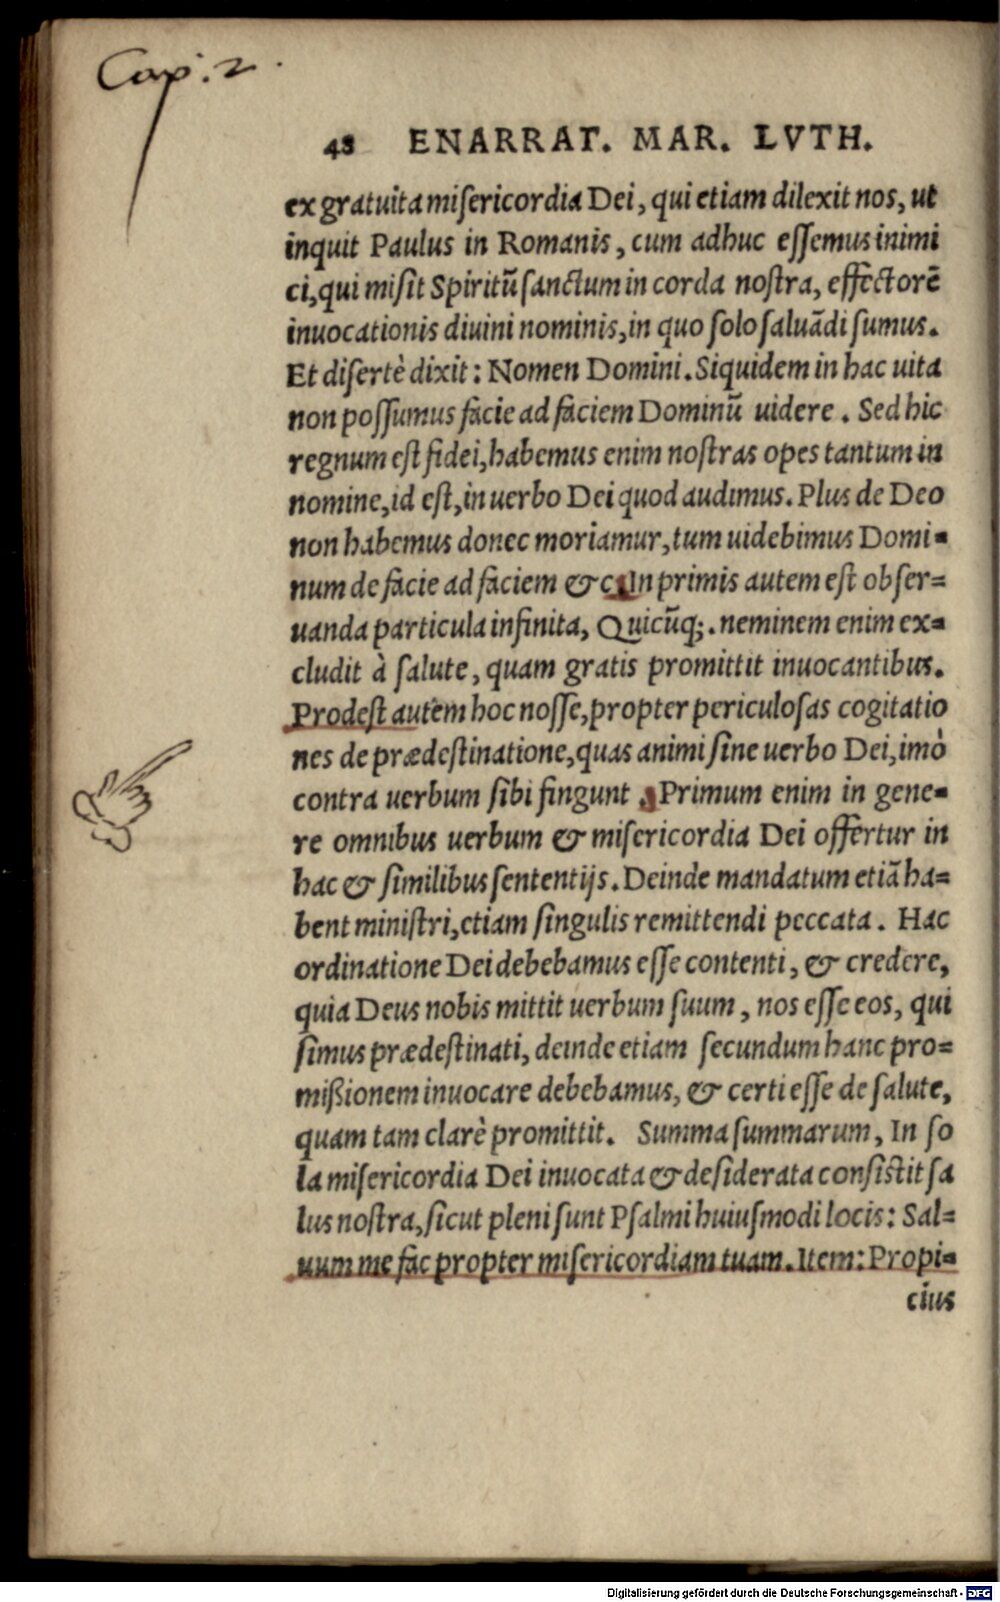 Cap. 2.
48 ENARRAT. MAR. LVTH.
ex gratuita misericordia Dei, qui etiam dilexit nos, ut
inquit Paulus in Romanis, cum adhuc essemus inimi
ci, qui misit Spiritū sanctum in corda nostra, effectorē
inuocationis diuini nominis, in quo solo saluādi sumus.
Et disertè dixit: Nomen Domini. Siquidem in hac uita
non possumus facie ad faciem Dominū uidere. Sed hic
regnum est fidei, habemus enim nostras opes tantum in
nomine, id est, in uerbo Dei quod audimus. Plus de Deo
non habemus donec moriamur, tum uidebimus Domi-
num de facie ad faciem &c. In primis autem est obser-
uanda particula infinita, Quicūq;. neminem enim ex-
cludit à salute, quam gratis promittit inuocantibus.
Prodest autem hoc nosse, propter periculosas cogitatio
nes de prædestinatione, quas animi sine uerbo Dei, imò
contra uerbum sibi fingunt. Primum enim in gene-
re omnibus uerbum & misericordia Dei offertur in
hac & similibus sententijs. Deinde mandatum etiā ha-
bent ministri, etiam singulis remittendi peccata. Hac
ordinatione Dei debebamus esse contenti, & credere,
quia Deus nobis mittit uerbum suum, nos esse eos, qui
simus prædestinati, deinde etiam secundum hanc pro-
mißionem inuocare debebamus, & certi esse de salute,
quam tam clarè promittit. Summa summarum, In so
la misericordia Dei inuocata & desiderata consistit sa
lus nostra, sicut pleni sunt Psalmi huiusmodi locis: Sal-
uum me fac propter misericordiam tuam. Item: Propi-
cius
Digitalisierung gefördert durch die Deutsche Forschungsgemeinschaft - DFG